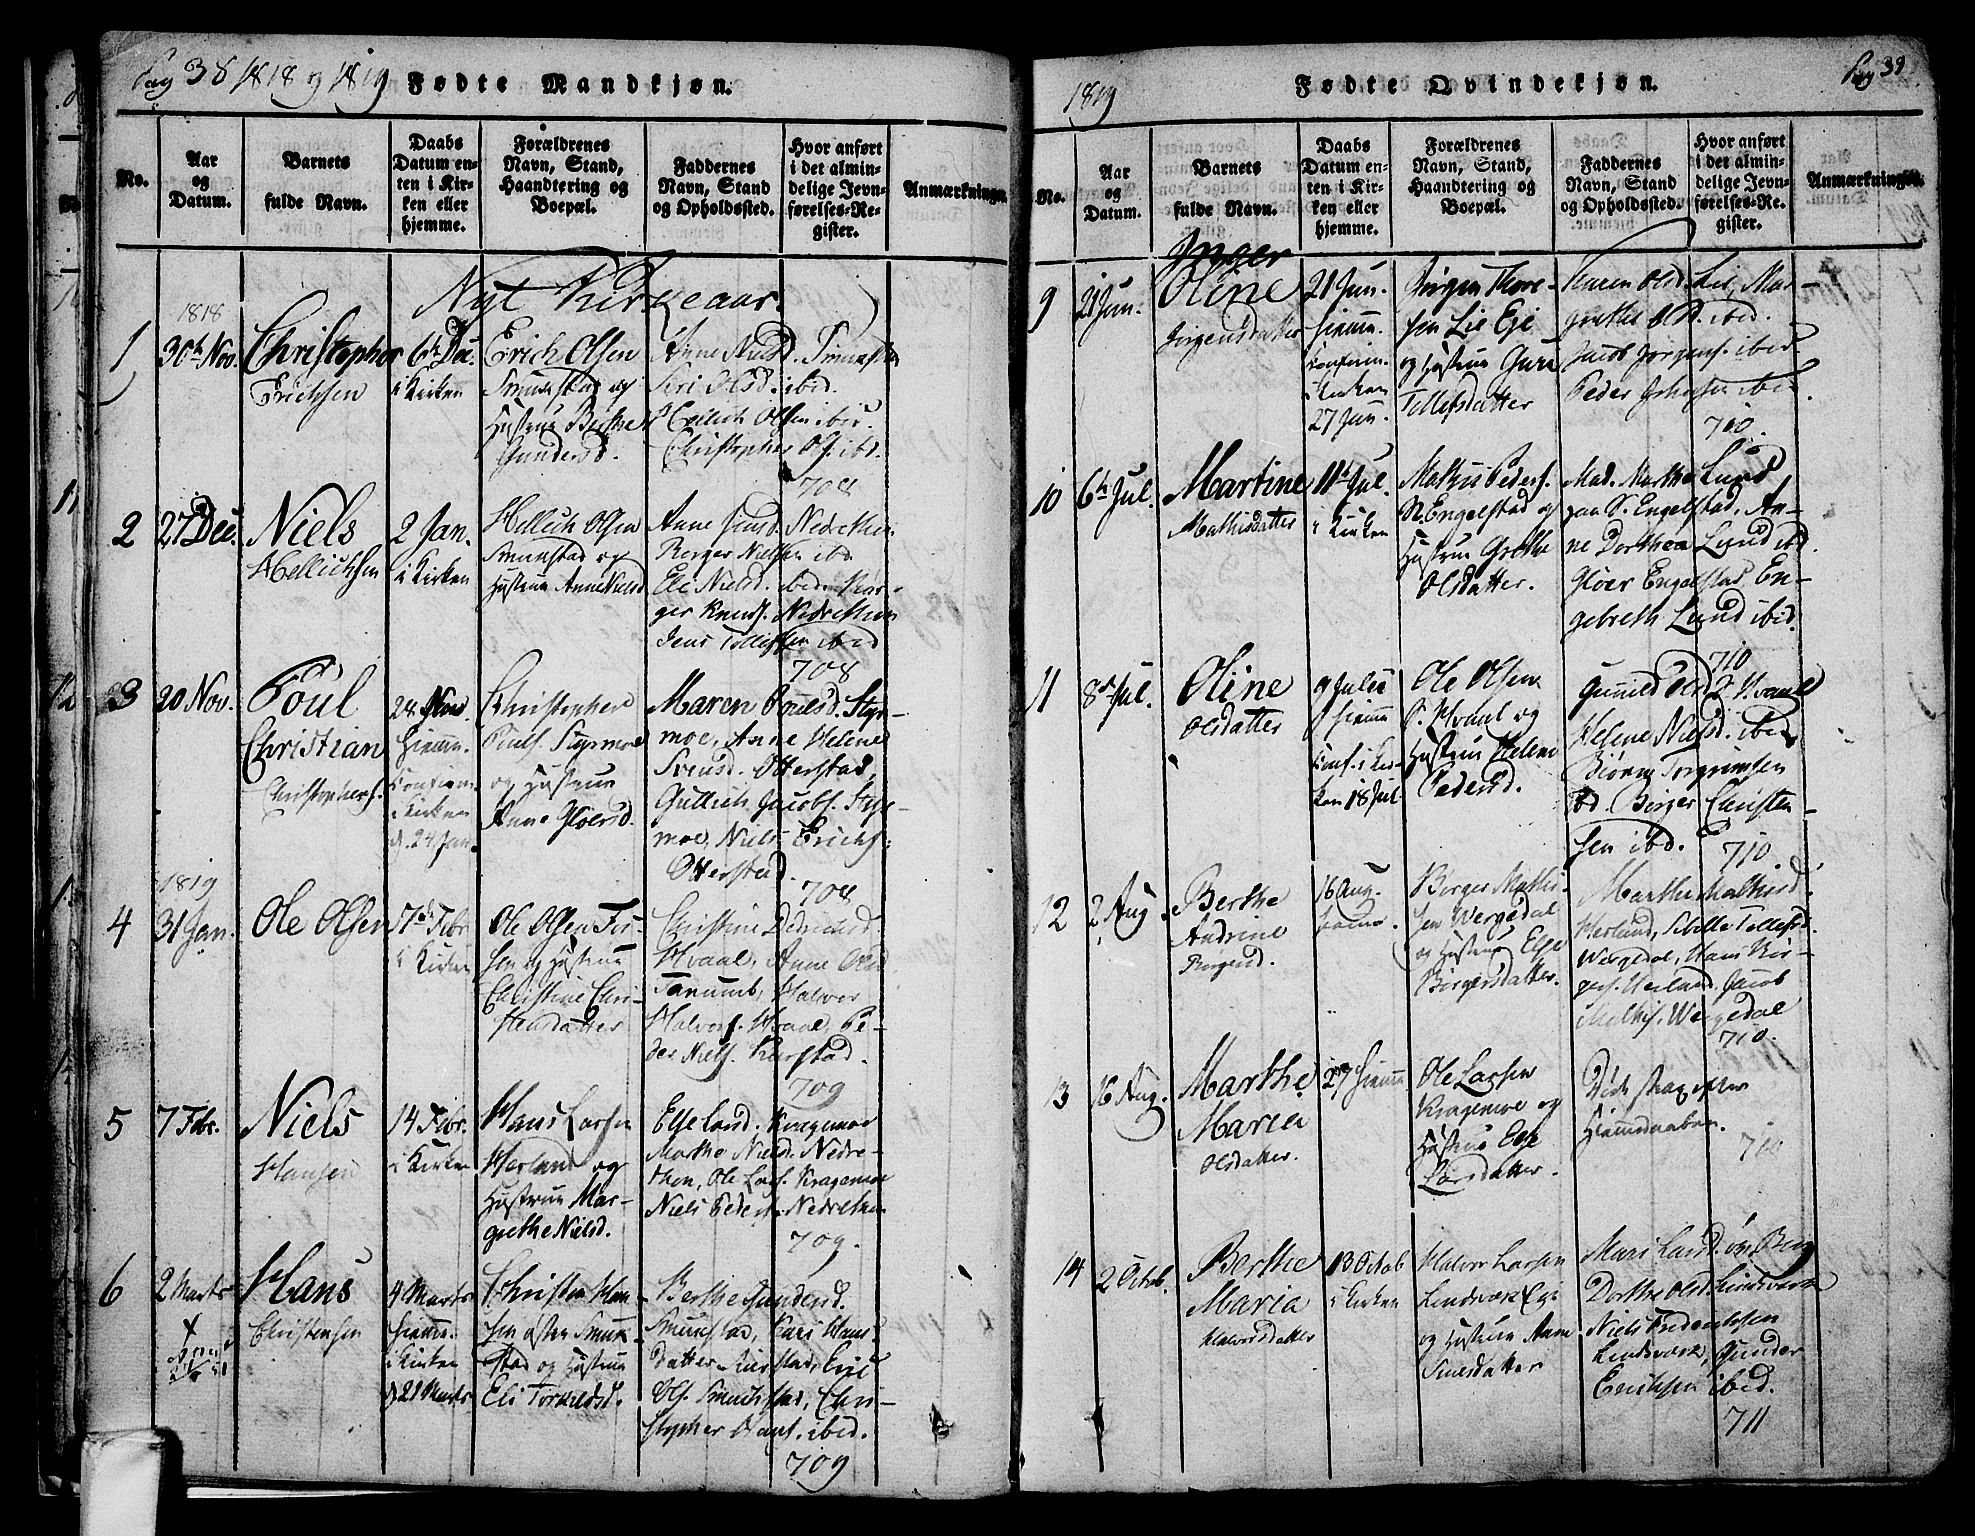 Pag 38 1818 og 1819 Fødte Mandkjøn.
No.
Aar
og
Datum.
Barnets
fulde Navn.
Daabs
Datum en-
ten i Kir-
ken eller
hjemme.
Forældrenes
Navn, Stand,
Haandtering og
Boepæl.
Faddernes
Navn, Stand
og Opholdssted.
Hvor anført
i det almin-
delige Jevn-
førelses-Re-
gister.
Anmærkninger.
Nyt Kirkeaar.
1818
1
30th Nov.
Christopher
Erichsen
6th Dec.
i Kirken
Erich Olsen
og
Hustrue Berthe
Gundersd.
Anne
Siri Olsd. ibid.
Olsen ibid.
Christopher Ols. ibd.
708
2
27 Dec.
Niels
Hellichsen
2 Jan.
i Kirken
Hellich Olsen
Smukstad og
Hustrue Anne Nielsd
Anne Jensd. Nedrethen
Borger Nielsen ibd
Eli Nielsd. ibid.
ger Knuds. Nedrethen
Jens Tollefsen ibid
708
3
20 Nov.
Poul
Christian
Christophers.
24 Nov.
hiemme.
Confirm.
i Kirken
d. 24 Jan.
Christopher
Pouls. Styrmoe
og Hustrue
Anne Gloersd.
Maren Poulsd. Styr-
moe, Anne Helene
Svensd. Otterstad,
Gullich Jacobs. Styr-
moe, Niels Erichs.
Otterstad.
708
1819
4
31 Jan.
Ole Olsen
17de Febr
i Kirken
Ole Olsen
sen og Hustrue
Christine Chri-
stensdatter
Christine
Hvaal, Anne Olsd
Tanumb, Halvor
Halvors. Hvaal, Pe-
der Niels. Kurstad.
709
5
7 Febr.
Niels
Hansen
14 Febr.
i Kirken
Hans Larsen
Herland og
Hustrue Mar-
grethe Nielsd.
Else Larsd. Kragemoe
Marthe Nielsd. Nedre-
then, Ole Lars. Kragemoe
Niels Peders. Nedrethen
709.
6
2 Marts
Hans
Christensen
4 Marts
hiemme.
i Kirken
d 21 Marts
Christen Han-
sen østen Smuk-
stad og Hustrue
Eli Torkildsd.
Berthe Gundersd.
Smukstad, Kari Hans-
datter
Ols. Smukstad, Chri-
stopher Hans. ibid.
709
1819
Fødte Qvindekjøn.
Pag 39
No.
Aar
og
Datum.
Barnets
fulde Navn.
Daabs
Datum en-
ten i Kir-
ken eller
hjemme.
Forældrenes
Navn, Stand,
Haandtering og
Boepæl.
Faddernes
Navn, Stand
og Opholdssted.
Hvor anført
i det almin-
delige Jevn-
førelses-Re-
gister.
Anmærkninger.
9
21 Jun.
Inger
Oline
Jörgensdatter
21 Jun.
hiemme.
Confirm.
i Kirken
27 Jun.
Jörgen Thore-
sen Lie Eje
og Hustrue Guri
Tollefsdatter
Karen Olsd. Lie, Mar-
grethe Olsd. ibid.
Jacob Jörgens. ibid.
Peder Johansen ibid
710.
10
6th Jul.
Martine
Mathisdatter
11th Jul.
i Kirken
Mathis Peders.
N. Engelstad og
Hustrue Grethe
Olsdatter.
Mad. Marthe Lund
paa S. Engelstad, An-
ne Dorthea Lund ibd.
Gloer Engelstad, En-
gebreth Lund ibid.
710
11
8de Jul.
Oline
Olsdatter
9 Julii
hiemme
Conf. i Kir-
ken 18 Jul.
Ole Olsen
S. Hvaal og
Hustrue Helene
Pedersd.
Gunild Olsd S. Hvaal
Helene Nielsd. ibid
Biörn Torgrimsen
ibd. Börger Christen-
sen ibd.
710.
12
2 Aug.
Berthe
Andrine
Borgersd.
16 Aug.
hiemme.
Börger Mathi-
sen Wergedal
og Hustrue Else
Börgersdatter.
Marthe Mathisd.
Herland, Sibille Tollefsd.
Wergedal, Hans Bör-
gers. Herland, Jacob
Mathis. Wergedal
710.
13
16 Aug.
Marthe
Maria
Olsdatter.
27 hiemme
Ole Larsen
Kragemoe og
Hustrue Else
Larsdatter.
Död strax efter
Hiemmedaaben.
710
14
2 Octob.
Berthe
Maria
Halvorsdatter
13 Octob
i Kirken
Halvor Larsen
Lindsværk Eje
og Hustrue Anne
Mari Larsd. öv. Berg
Dorthe Olsd. Lindsværk
Niels Frederichsen
Lindsværk, Gunder
Erichsen ibid.
711